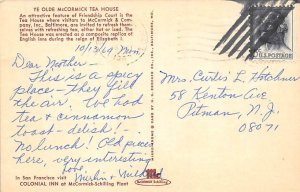 YE OLDE McCORMICK TEA HOUSE
An attractive feature of Friendship Court is the
Tea House where visitors to McCormick & Com-
pany, Inc., Baltimore, are invited to refresh them-
selves with refreshing tea, either hot or iced. The
Tea House was erected as a composite replica of
English inns during the reign of Elizabeth I.
10/13/69 Mon.
Dear Mother -
This is a spicy
place - They fill
the air. We had
tea & cinnamon
toast - delish! -
No lunch! Old pieces
here, very interesting
love,
Merlin & Mildred
Mrs. Curtis L. Hotchner
58 Kenton Ave
Pitman, N. J.
08071
U.S. POSTAGE
In San Francisco visit
COLONIAL INN at McCormick-Schilling Plant
McCORMICK
SCHILLING